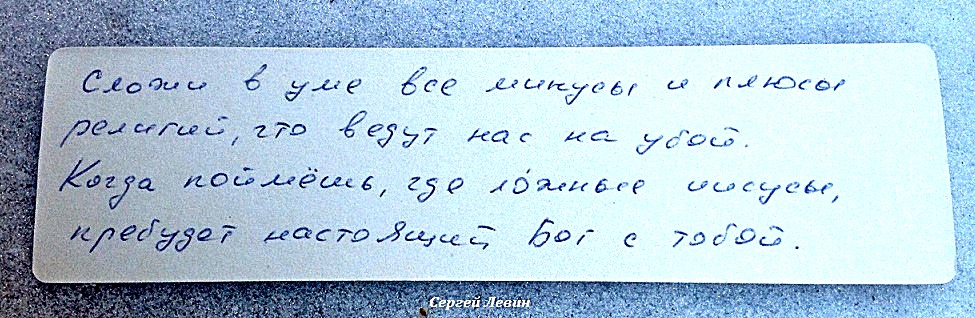 Сложи в уме все минусы и плюсы
религий, что ведут нас на убой.
Когда поймёшь, где ло́жные иисусы,
пребудет настоящий Бог с тобой.
Сергей Левин